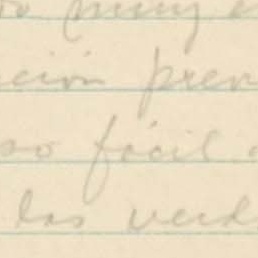 muy
ción prev
so fácil
las verd